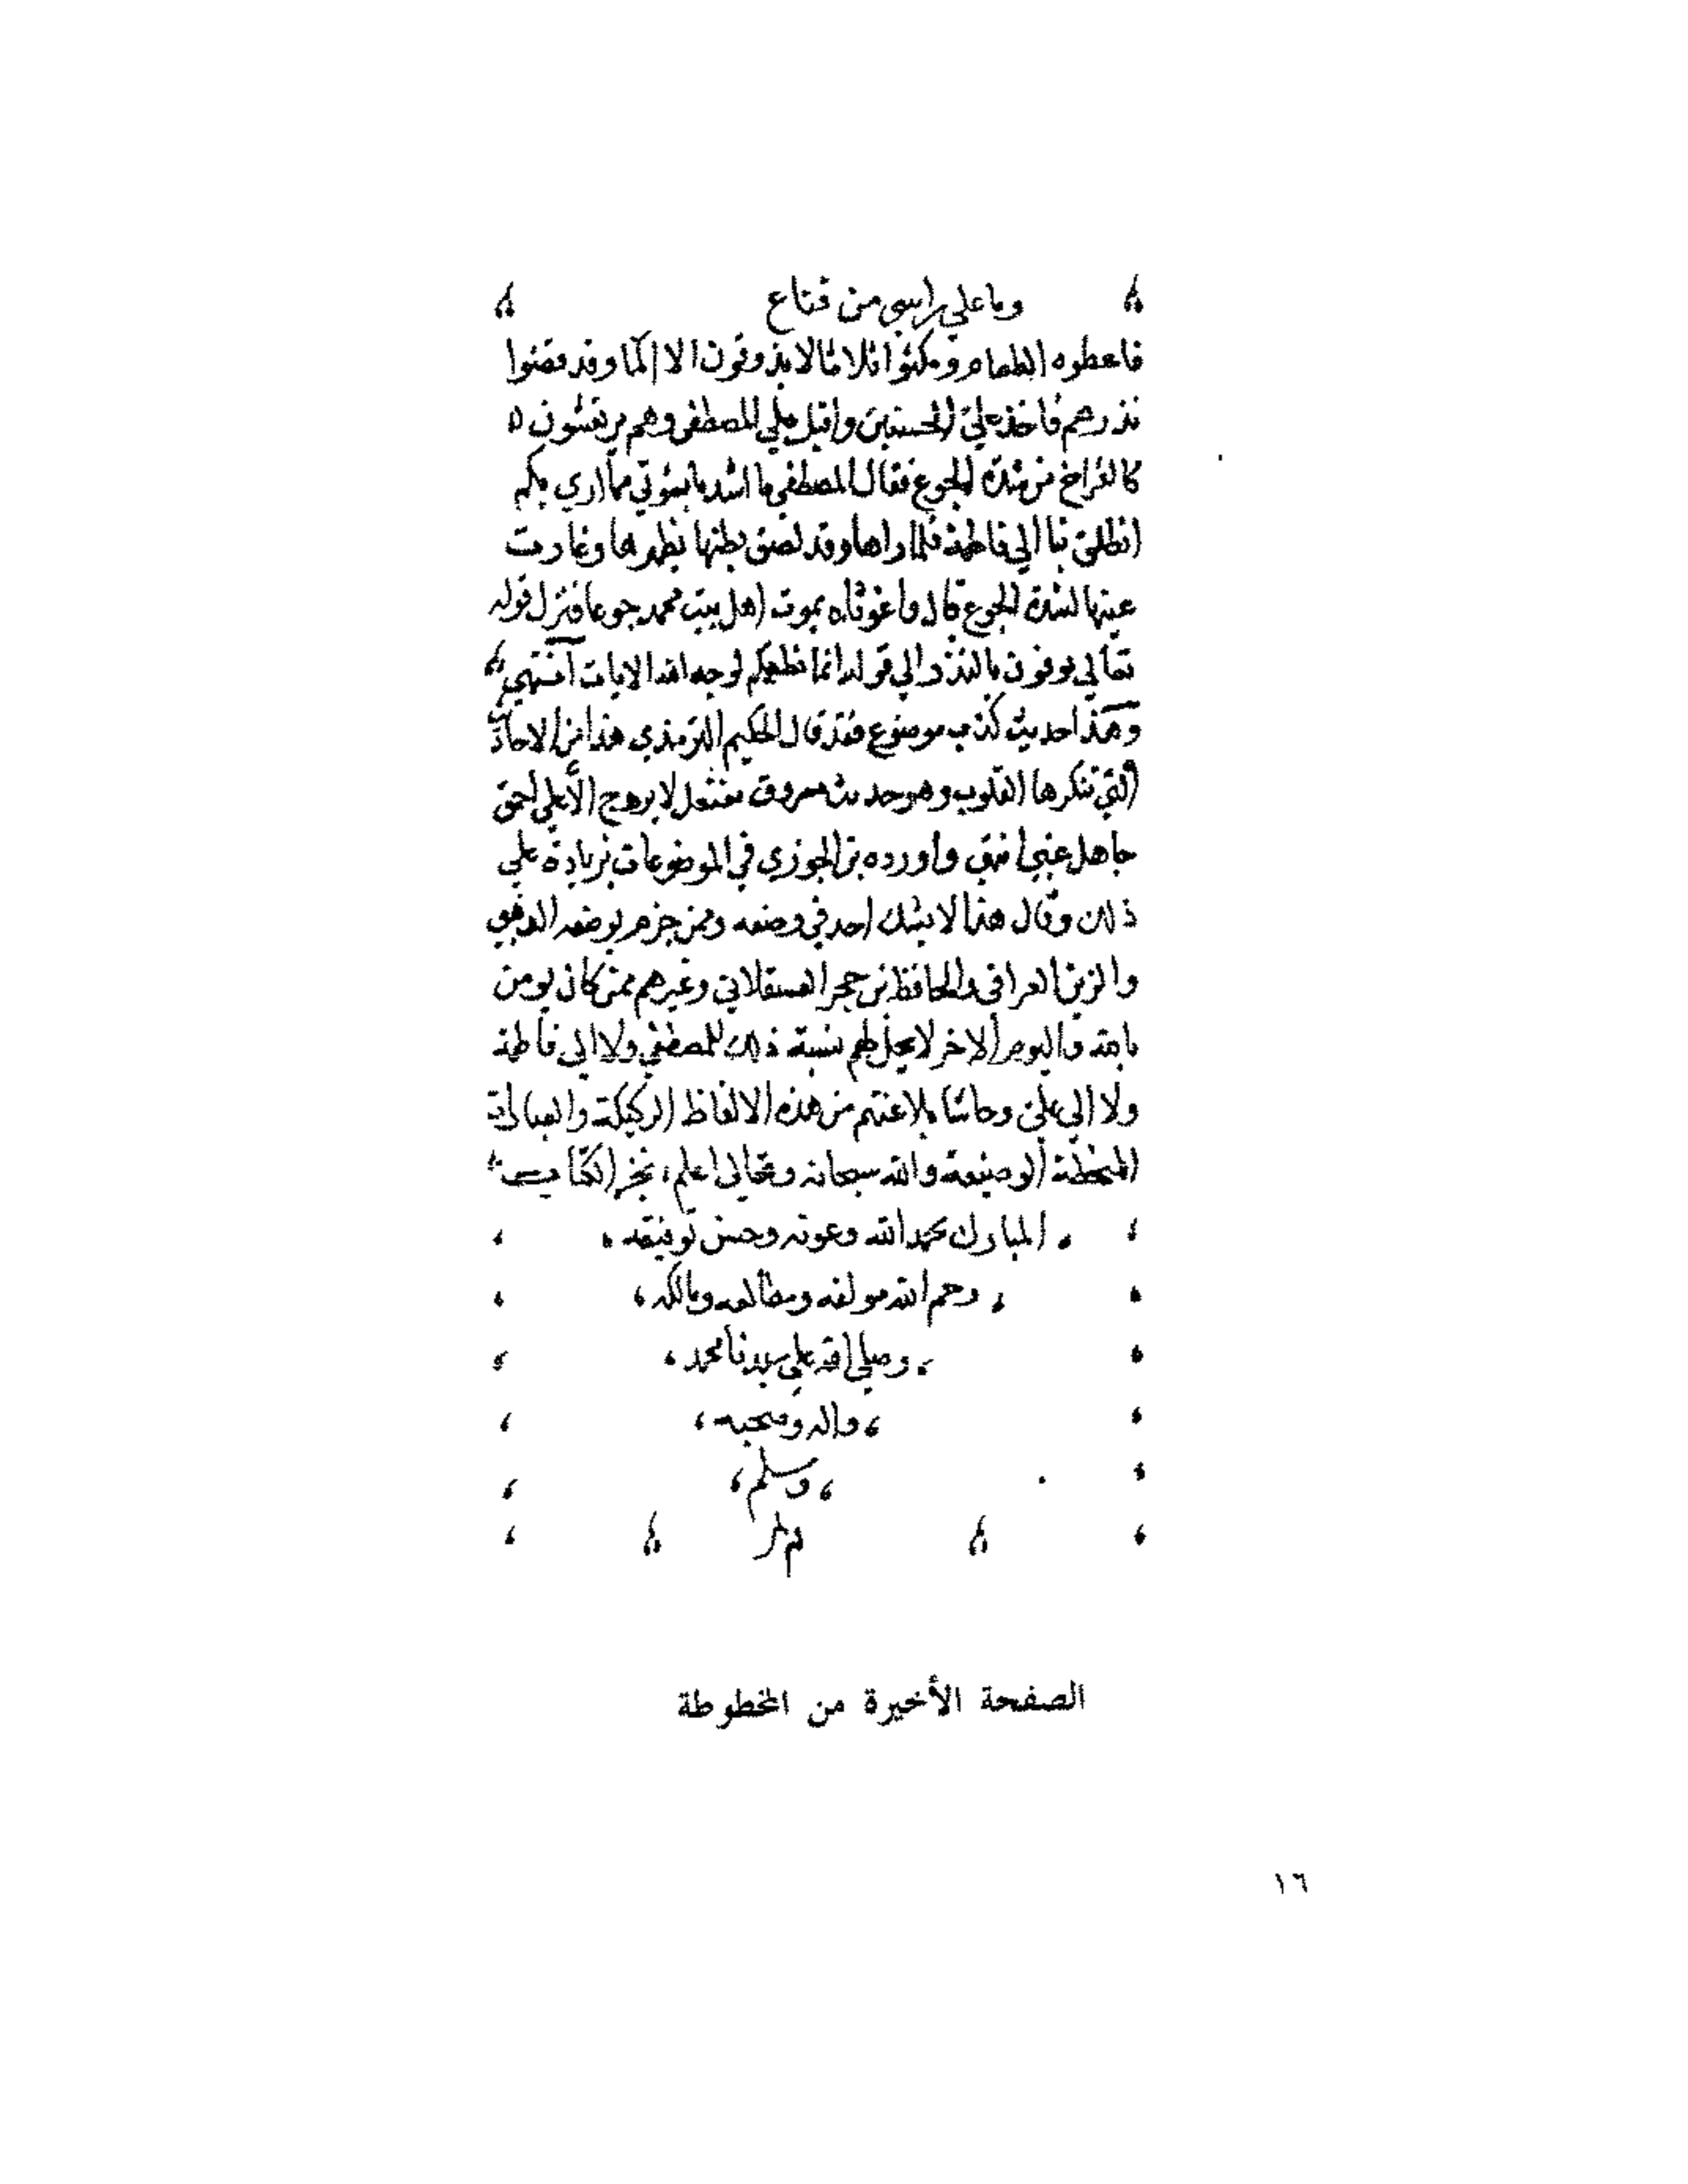 وما علي راسي من قناع
فاعطوه الطعام ومكثوا ثلاثا لا يذوقون الا الما وقد قضوا
نذرهم فاخذ علي الحسنين واقبل علي المصطفى وهم يرتعشون
كالفراخ من شدة الجوع فقال المصطفى ما اشد ما يسوئي مما اري بكم
انطلق بنا الي فاطمة فلما راها وقد لصق بطنها بظهرها وغارت
عينها لشدة الجوع قال واغوثاه يموت اهل بيت محمد جوعا فنزل قوله
تعالي يوفون بالنذر الي قوله انما نطعمكم لوجه الله الايات انتهي
وهذا حديث كذب موضوع فقد قال الحكيم الترمذي هذا من الاحاد
التي تنكرها القلوب وهو حديث مفتعل لا يروج الا علي احمق
جاهل غبي انتهي واورده بن الجوزي في الموضوعات بزيادة علي
ذلك وقال هذا لا يشك احد في وضعه وممن جزم بوضعه الذهبي
والزين العراقي والحافظ بن حجر العسقلاني وغيرهم ممن كان يومن
بالله واليوم الاخر لا يحل لهم نسبة ذلك للمصطفي ولا الي فاطمة
ولا الي علي وحاشا بلاغتهم من هذه الالفاظ الركيكة والعبارات
المنحطة الوضيعة والله سبحانه وتعالي اعلم، نجز الكتاب
المبارك بحمد الله وعونه وحسن توفيقه
رحم الله مولفه ومطالعه ومالكه
وصلي الله علي سيدنا محمد
واله وصحبه
وسلم
الصفحة الأخيرة من المخطوطة
١٦